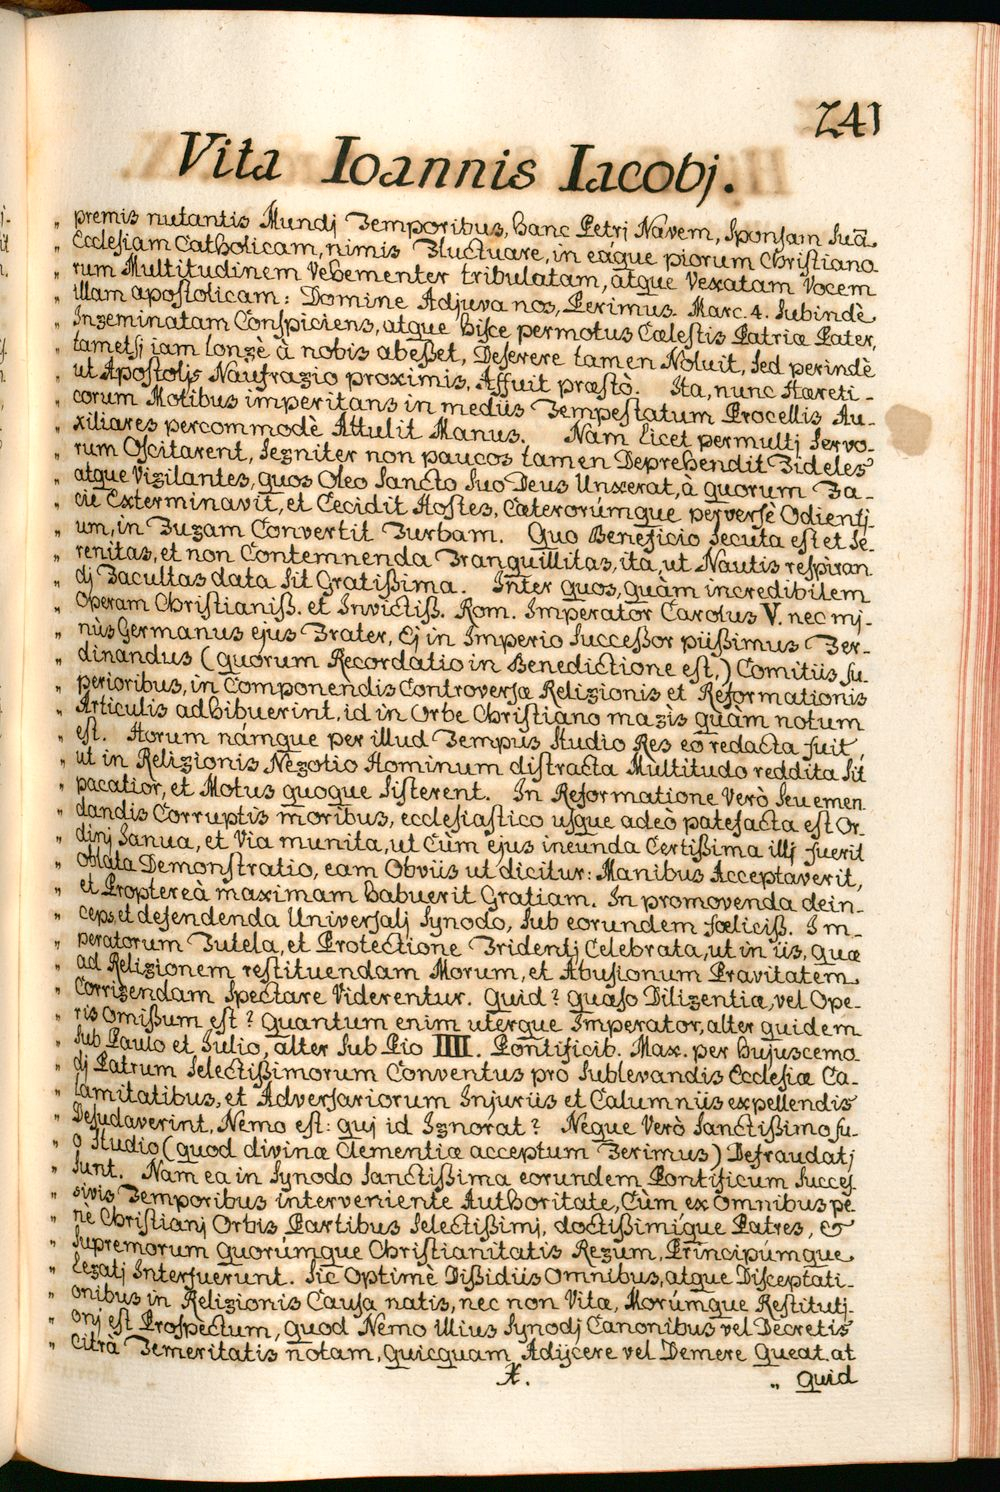 241
Vita Ioannis Iacobj.
„ premis nutantis Mundj Temporibus, hanc Petrj Navem, Sponsam Suã
„ Ecclesiam Catholicam, nimis Fluctuare, in eáque piorum Christiano
„ rum Multitudinem Vehementer tribulatam, atque Vexatam Vocem
„ illam apostolicam: Domine Adjuva nos, Perimus. Marc. 4. Subindè
„ Ingeminatam Conspiciens, atque hisce permotus Cœlestis Patriæ Pater,
„ tametsj iam longè à nobis abeßet, Deserere tamen Noluit, Sed perindè
„ ut Apostolis Naufragio proximis, Affuit præstò. Ita, nunc Hæreti-
„ corum Motibus imperitans in mediis Tempestatum Procellis Au-
„ xiliares percommodè Attulit Manus. Nam licet permultj Servo-
„ rum Oscitarent, Segniter non paucos tamen Deprehendit Fideles
„ atque Vigilantes, quos Oleo Sancto Suo Deus Unxerat, à quorum Fa-
„ cie Exterminavit, et Cecidit Hostes, Cæterorúmque perversè Odientj-
„ um, in Fugam Convertit Turbam. Quo Beneficio Secuta est et Se-
„ renitas, et non Contemnenda Tranquillitas, ità, ut Nautis respiran
„ dj Facultas data Sit Gratißima. Inter quos, quàm incredibilem
„ Operam Christianiß. et Invictiß. Rom. Imperator Carolus V. nec mj-
„ nùs Germanus ejus Frater, Ej in Imperio Succeßor piißimus Fer-
„ dinandus (quorum Recordatio in Benedictione est,) Comitiis Su-
„ perioribus, in Componendis Controversæ Religionis et Reformationis
„ Articulis adhibuerint, id in Orbe Christiano magìs quàm notum
„ est. Horum námque per illud Tempus Studio Res eò redacta fuit,
„ ut in Religionis Negotio Hominum distracta Multitudo reddita Sit
„ pacatior, et Motus quoque Sisterent. In Reformatione Verò Seu emen
„ dandis Corruptis moribus, ecclesiastico usque adeò patefacta est Or-
„ dinj Ianua, et Via munita, ut Cùm ejus ineunda Certißima illj fuerit
„ oblata Demonstratio, eam Obviis ut dicitur: Manibus Acceptaverit,
„ et Proptereà maximam habuerit Gratiam. In promovenda dein-
„ ceps, et defendenda Universalj Synodo, Sub eorundem fœliciß. Im-
„ peratorum Tutela, et Protectione Tridentj Celebrata, ut in iis, quæ
„ ad Religionem restituendam Morum, et Abusionum Pravitatem
„ Corrigendam Spectare Viderentur. Quid? quæso Diligentiæ, vel Ope-
„ ris Omißum est? Quantum enim uterque Imperator, alter quidem
„ Sub Paulo et Iulio, alter Sub Pio IIII. Pontificib. Max. per hujuscemo
„ dj Patrum Selectißimorum Conventus pro Sublevandis Ecclesiæ Ca-
„ lamitatibus, et Adversariorum Injuriis et Calumniis expellendis
„ Desudaverint, Nemo est: quj id Ignorat? Neque Verò Sanctißimo su-
„ o Studio (quod divinæ Clementiæ acceptum Ferimus) Defraudatj
„ Sunt. Nam ea in Synodo Sanctißima eorundem Pontificum Succes
„ sivis Temporibus interveniente Authoritate, Cùm ex Omnibus pe
„ nè Christianj Orbis Partibus Selectißimj, doctißimíque Patres, &
„ Supremorum Quorúmque Christianitatis Regum, Principúmque
„ Legatj Interfuerunt. Sic Optimè Dißidiis Omnibus, atque Disceptati-
„ onibus in Religionis Causa natis, nec non Vitæ, Morúmque Restitutj-
„ onj est Prospèctum, quod Nemo illius Synodj Canonibus vel Decretis
„ citrà Temeritatis notam, Quicquam Adijcere vel Demere Queat. at
„ quid